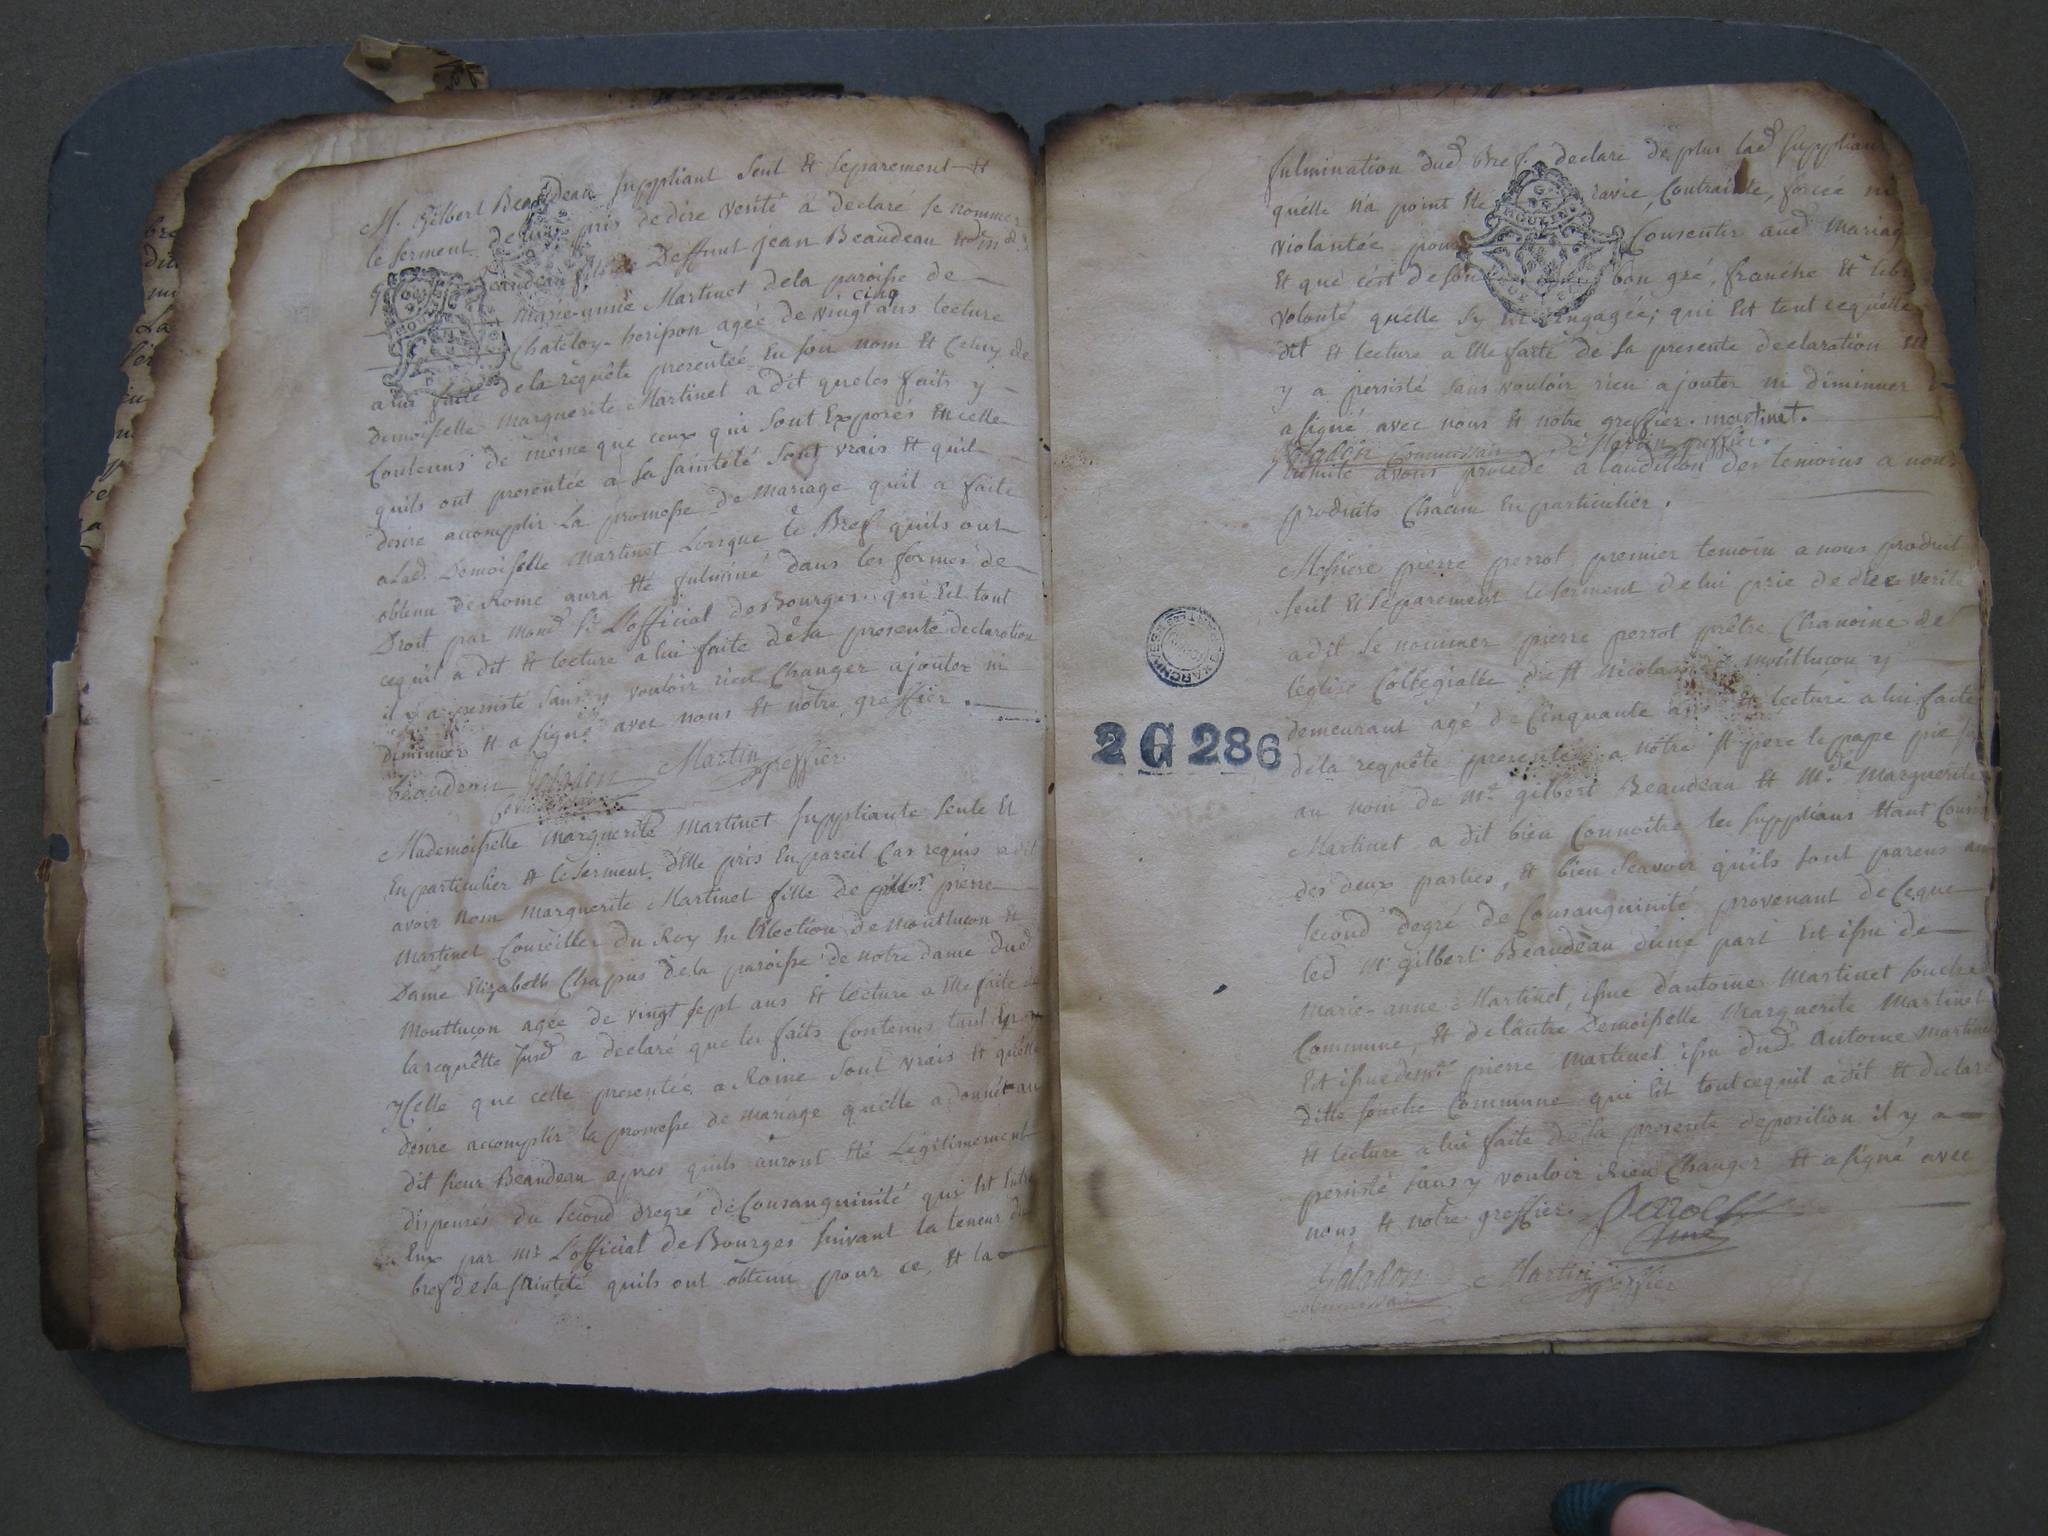 M. Gilbert Beaudeau suppliant seul et separement et
le serment de lui pris de dire verité a declaré se nommer
Beaudeau fils de Deffunt jean Beaudeau et de
Marie-anne Martinet de la paroisse de
Chateloy-herisson agée de vingt cinq ans lecture
a lui faite de la requête presentée en son nom et celuy de
demoiselle Marguerite Martinet a dit que les faits y
Contenus de même que ceux qui sont Exposés en celle
quils ont presentée a sa sainteté sont vrais et quil
desire accomplir la promesse de mariage quil a faite
a lad. Demoiselle Martinet Lorsque le Bref quils ont
obtenu de Rome aura été fulminé dans les formes de
Droit par l'official de Bourges qui est tout
cequil a dit et lecture a lui faite de sa presente declaration
il y a persisté sans y vouloir rien Changer ajouter ni
diminuer et a signé avec nous et notre greffier.
beaudeau Martin greffier
Mademoiselle Marguerite Martinet suppliante seule et
En particulier et le serment d'Elle pris En pareil Cas requis a dit
avoir nom Marguerite Martinet fille de pierre
Martinet Conseiller du Roy en l'Election de Montluçon et
Dame Elizabeth Chapus de la paroisse de notre dame dud
Montluçon agée de vingt sept ans et lecture a Elle faite de
la requête susd a declaré que les faits Contenus tant
ycelle que celle presentée a Rome sont vrais et qu'elle
desire accomplir la promesse de mariage qu'elle a donnée au
dit sieur Beaudeau apres quils auront été Légitimement
dispensés du second degré de Consanguinité qui est Entre
Eux par Mr L'official de Bourges suivant la teneur du
bref de sa sainteté quils ont obtenu pour ce, et la
fulmination dud Bref. declare de plus lad suppliante
quelle n'a point été ravie, Contrainte, forcée ni
violantée pour Consentir aud Mariage
Et que c'est de son bon gré, franche et libre
volonté quelle s'y est Engagée; qui est tout cequelle
dit et lecture a Elle faite de sa presente declaration
y a persisté sans vouloir rien ajouter ni diminuer
a signé avec nous et notre greffier. martinet.
Commissaire Martin greffier.
Ensuite avons procédé a l'audition des temoins a nous
produits Chacun En particulier.
Messire pierre perrot premier temoin a nous produit
seul et séparement le serment de lui pris de dire verité
a dit se nommer pierre perrot prêtre Chanoine de
l'église Collégialle de St Nicolas de montluçon y
demeurant agé de Cinquante ans et lecture a lui faite
de la requête presentée a nôtre St pere le pape
au nom de Mr gilbert Beaudeau et Mde Marguerite
Martinet a dit bien Connoître les supplians étant Cousin
des deux parties, et bien sçavoir quils sont parens au
second degré de Consanguinité provenant de ce que
led Mr gilbert Beaudeau d'une part est issu de
Marie-anne Martinet, issue d'antoine Martinet souche
Commune, et de l'autre Demoiselle Marguerite Martinet
Est issue de Mr pierre Martinet issu dud Antoine Martinet
ditte souche Commune qui est tout cequil a dit et declaré
et lecture a lui faite de sa presente deposition il y a
persisté sans y vouloir Rien Changer et a signé avec
nous et notre greffier.
Martin greffier
2 G 286